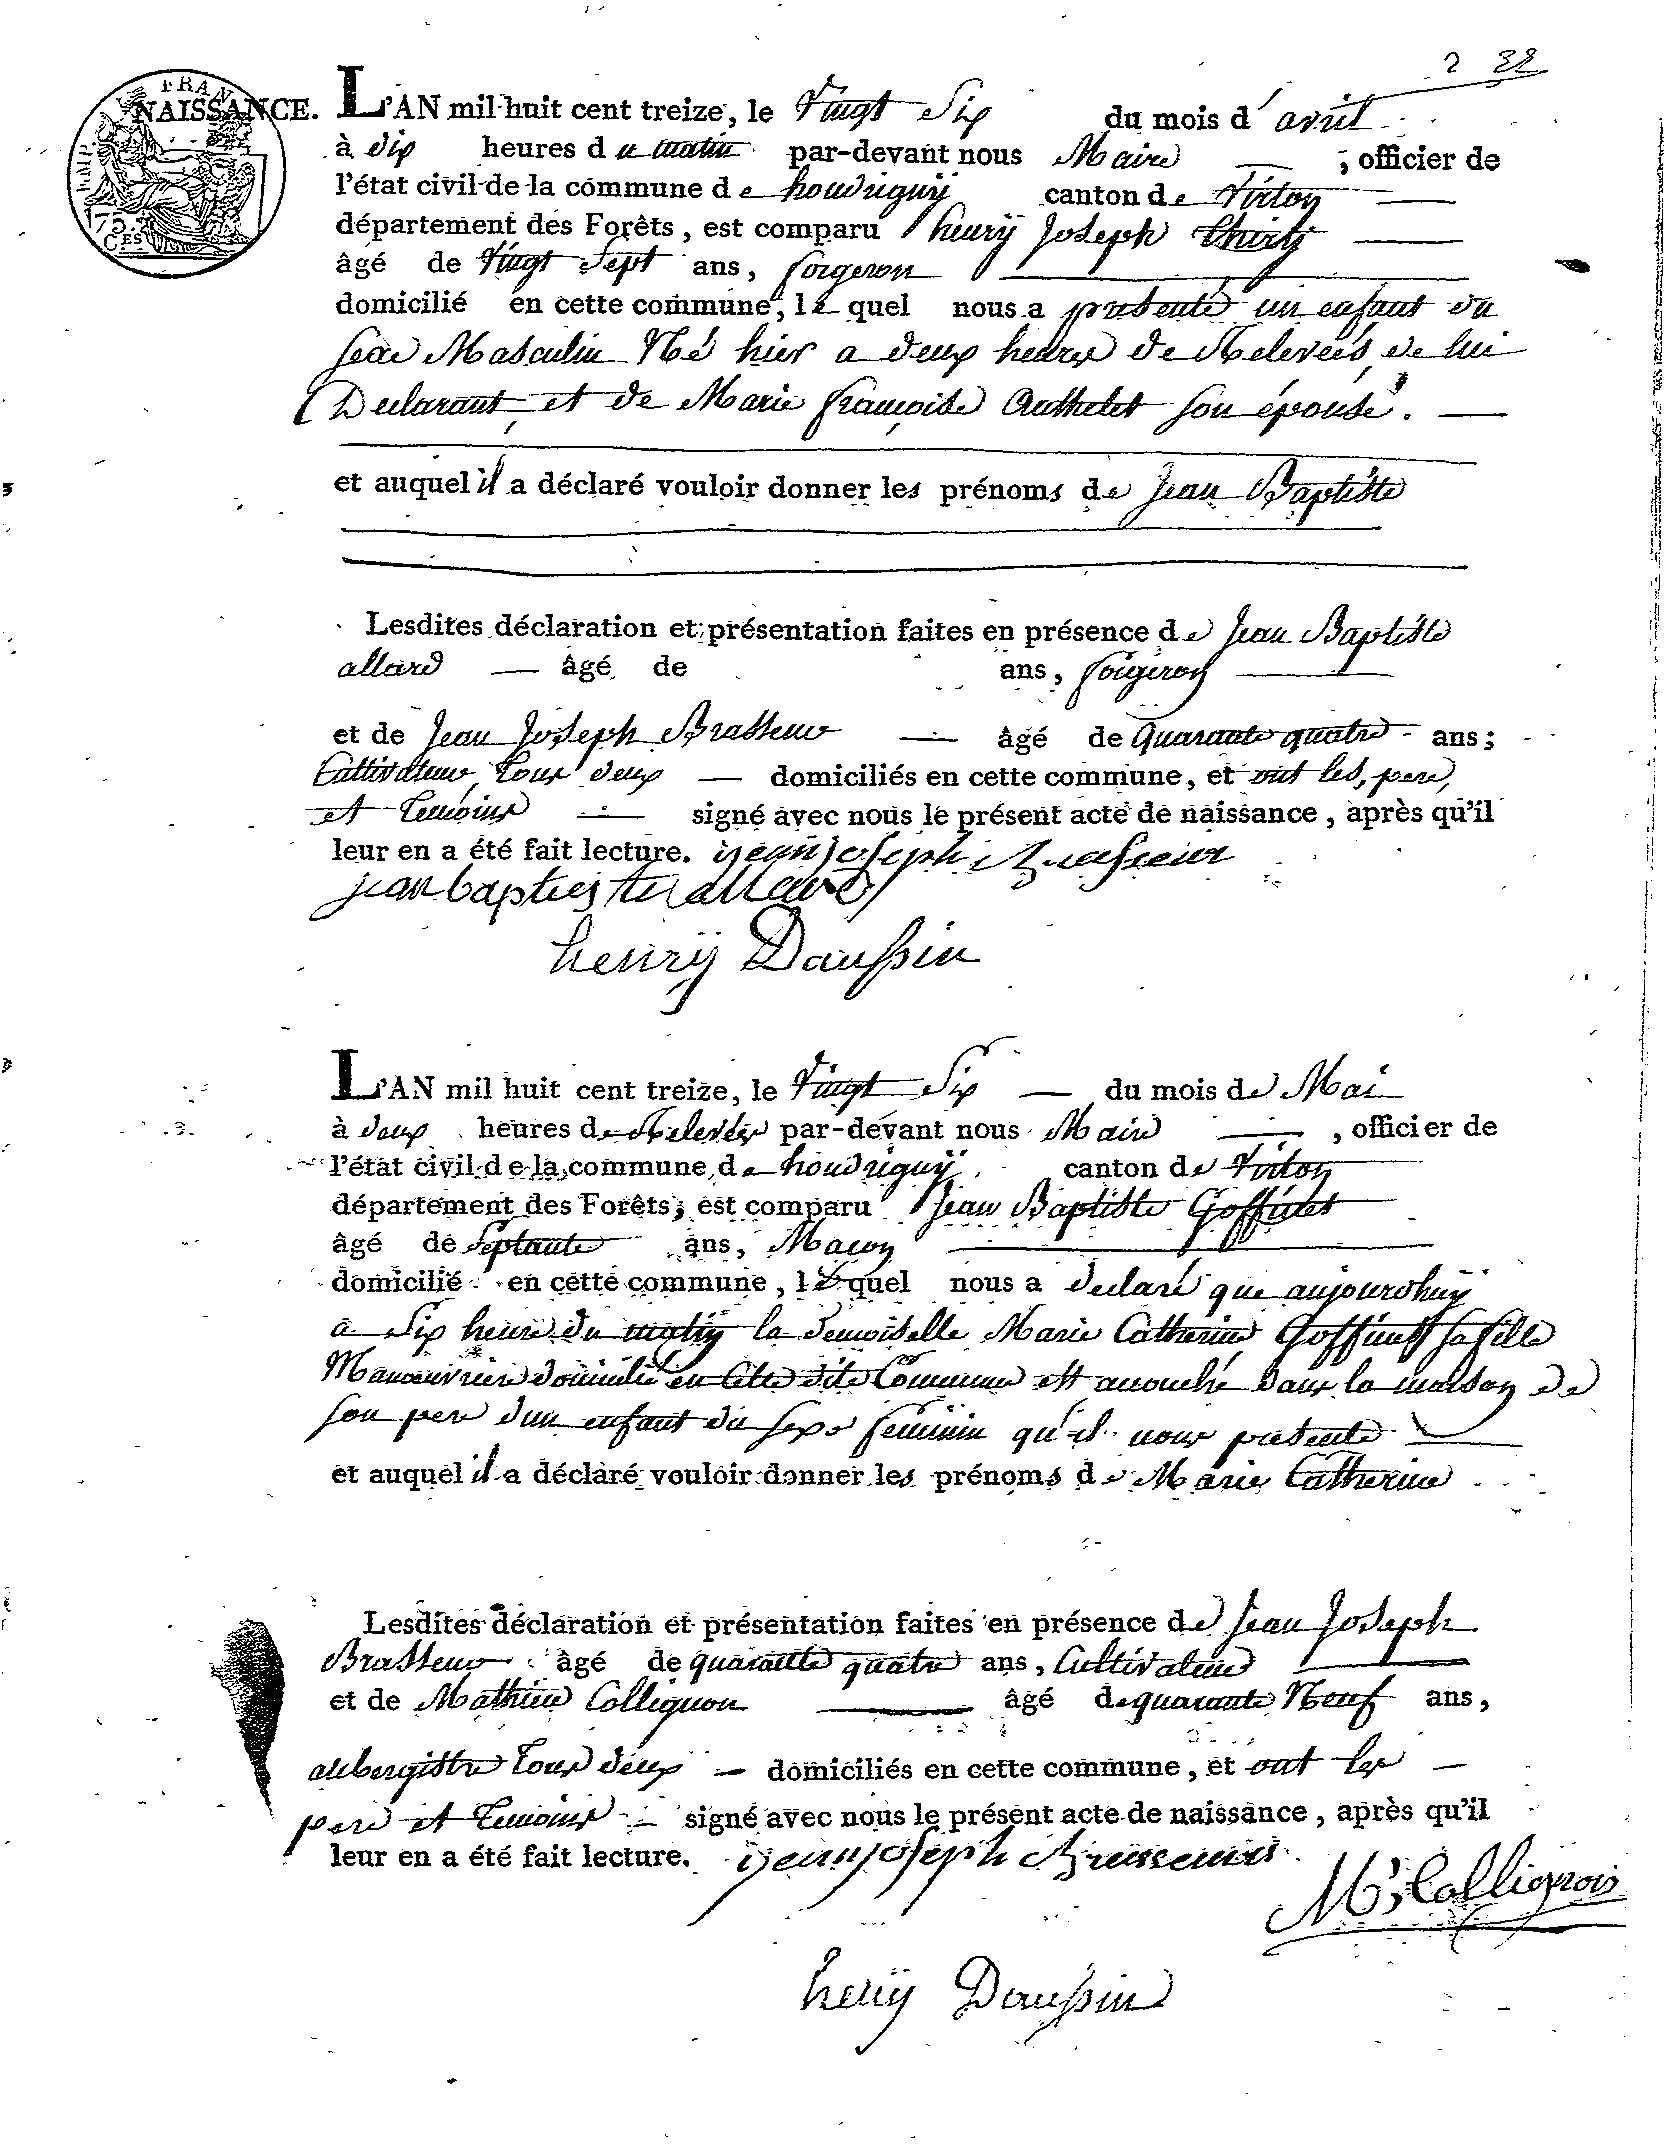 2 32
NAISSANCE. L'AN mil huit cent treize, le Vingt Six du mois d' avril
à dix heures du matin par-devant nous Maire, officier de
l'état civil de la commune de houdrignÿ canton de Virton
département des Forêts, est comparu henrÿ Joseph Thiry
âgé de Vingt Sept ans, forgeron
domicilié en cette commune, le quel nous a presenté un enfant du
sexe Masculin Né hier a deux heures de Relevées, de lui
Declarant, et de Marie françoise Authelet son épouse.
et auquel il a déclaré vouloir donner les prénoms de Jean Baptiste
Lesdites déclaration et présentation faites en présence de Jean Baptiste
allard âgé de ans, forgeron
et de Jean Joseph Brasseur âgé de Quarante quatre ans;
Cultivateur, tous deux domiciliés en cette commune, et ont les, pere,
et temoins signé avec nous le présent acte de naissance, après qu'il
leur en a été fait lecture. jean joseph Brasseur
jean baptiste allard
henrÿ Daussin
L'AN mil huit cent treize, le Vingt Six du mois de Mai
à deux heures de Relevées par-devant nous Maire, officier de
l'état civil de la commune de houdrignÿ canton de Virton
département des Forêts, est comparu Jean Baptiste Goffinet
âgé de Septante ans, Macon
domicilié en cette commune, le quel nous a declaré que aujourdhuÿ
a Six heure du matin la demoiselle Marie Catherine Goffinet sa fille
Manoeuvriere domicilié en cette dite Commune est accouché dans la maison de
son pere dun enfant du sexe feminin qu'il nous presente
et auquel il a déclaré vouloir donner les prénoms de Marie Catherine
Lesdites déclaration et présentation faites en présence de Jean Joseph
Brasseur âgé de quarante quatre ans, Cultivateur
et de Mathieu Collignon âgé de quarante Neuf ans,
aubergistre tous deux domiciliés en cette commune, et ont les
pere et temoins signé avec nous le présent acte de naissance, après qu'il
leur en a été fait lecture. jean joseph Brasseur
M; Collignon
henÿ Daussin